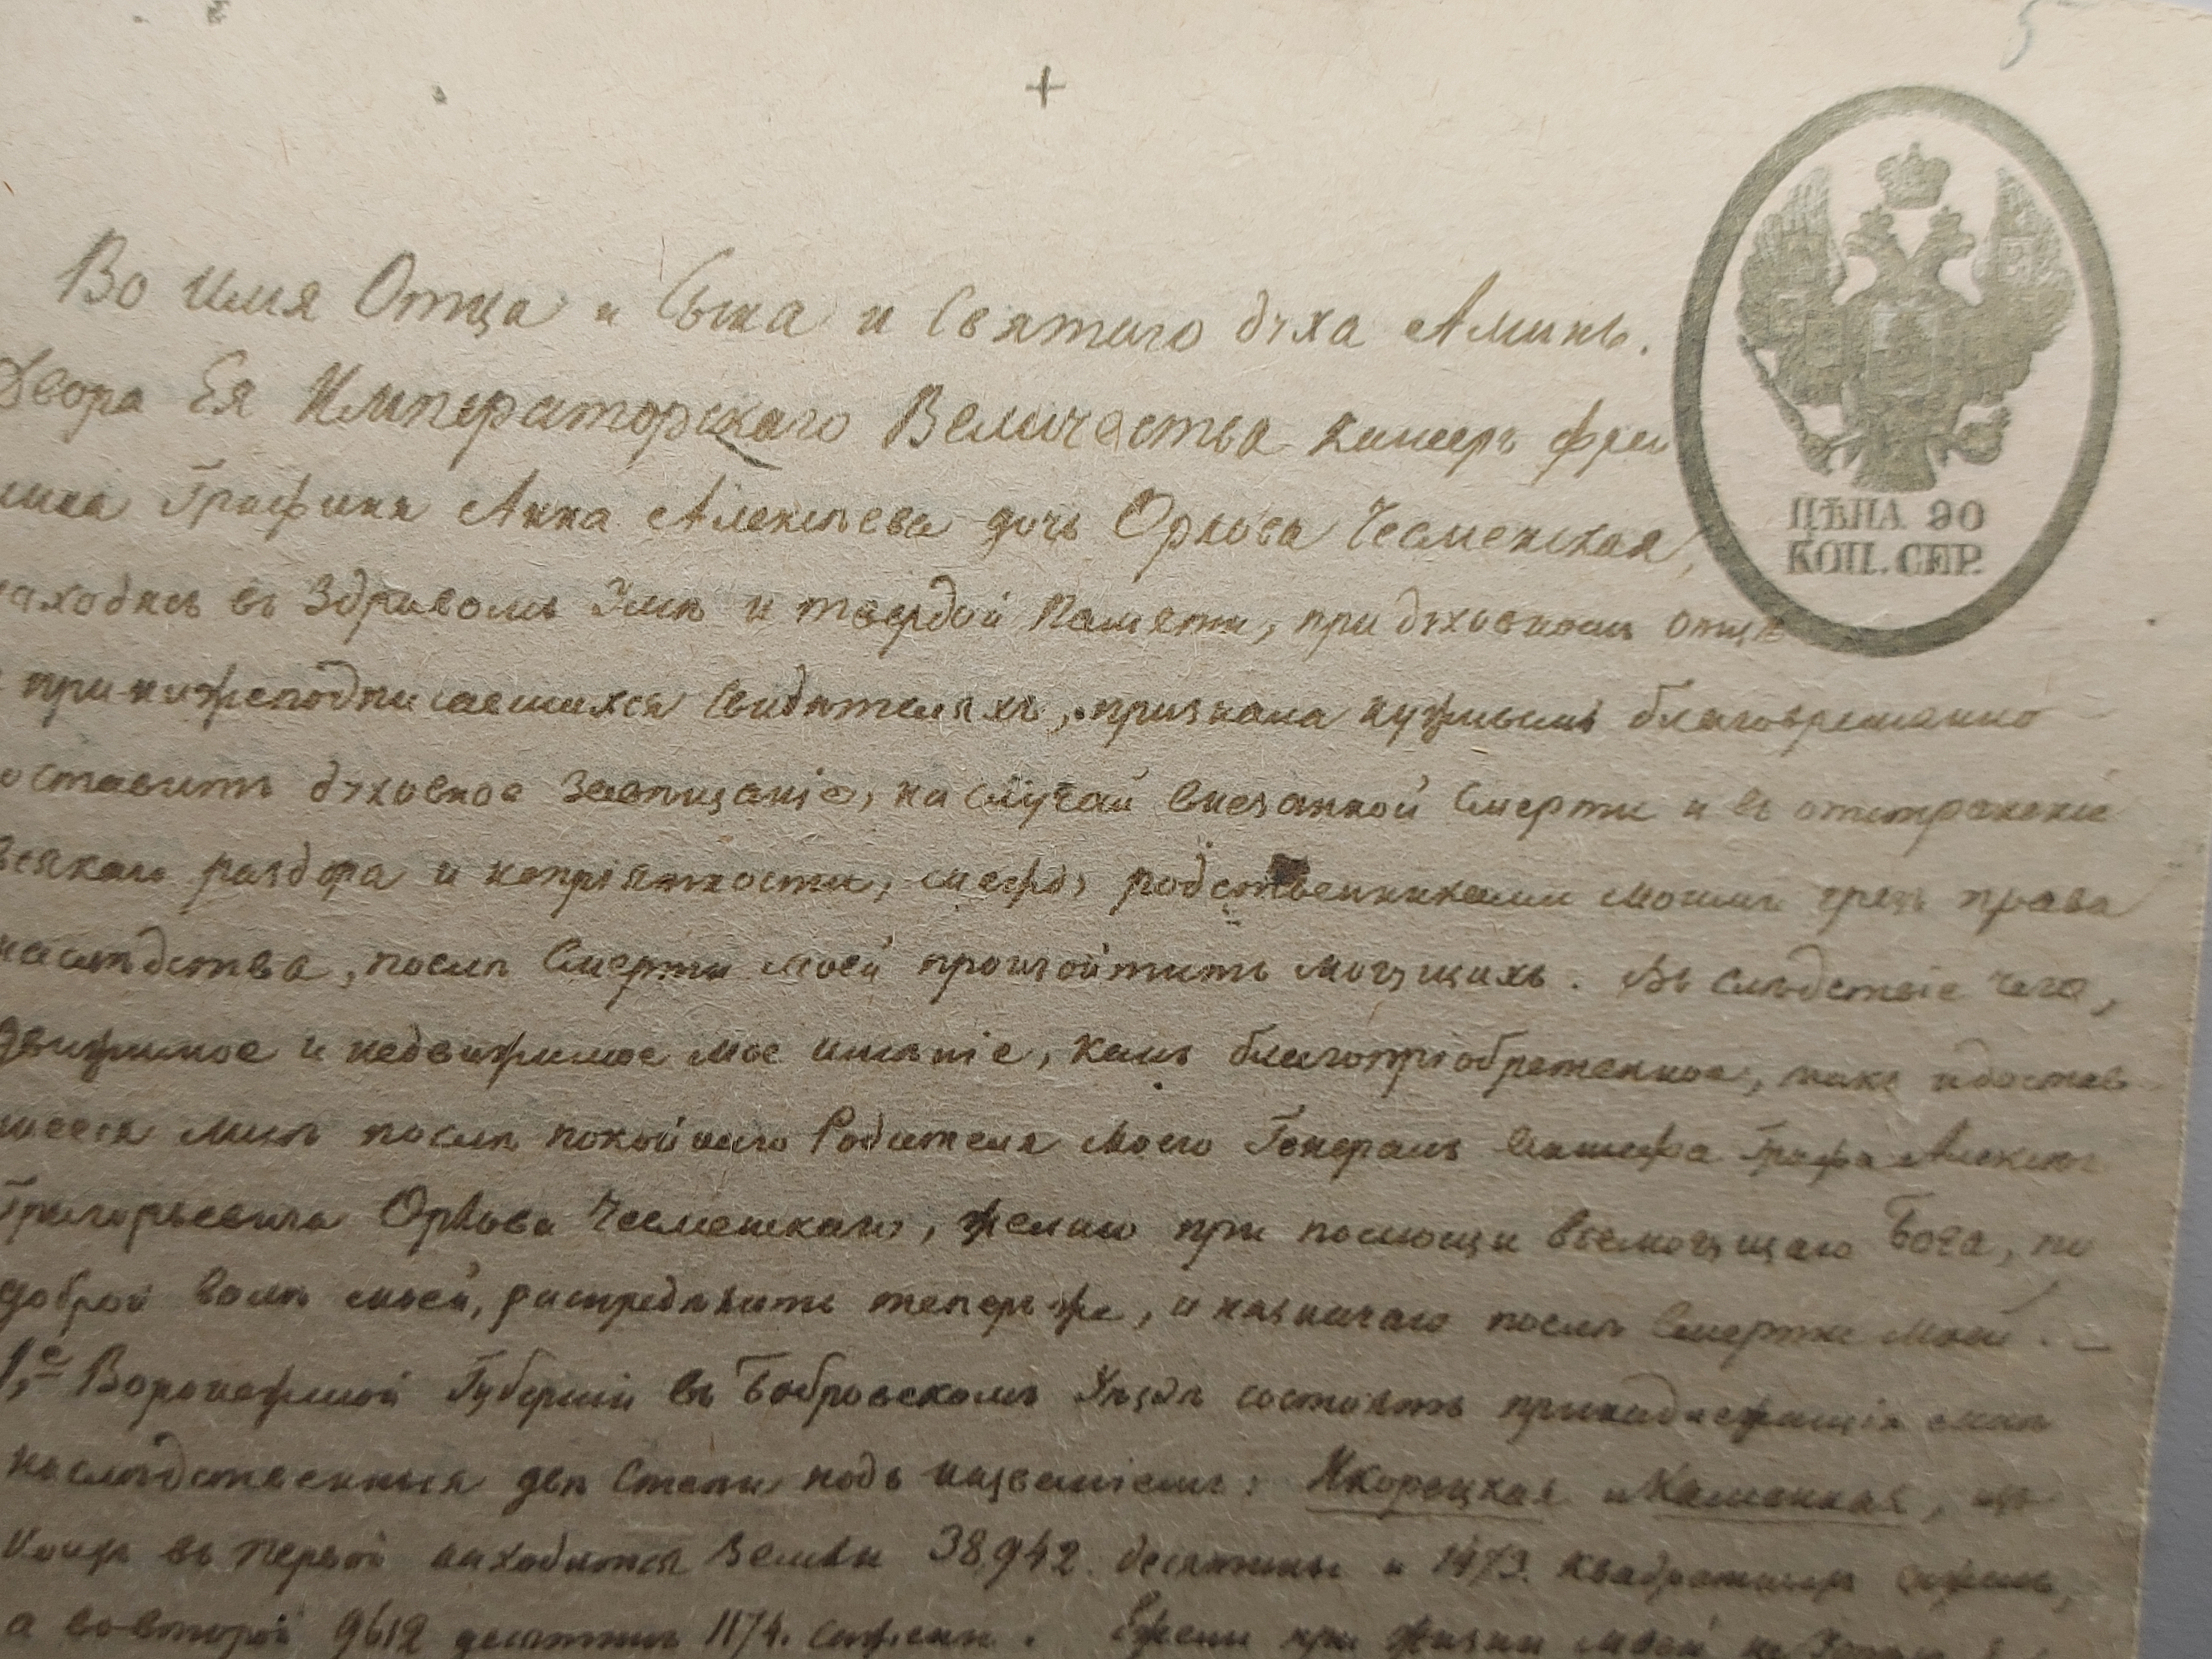 5
+
Во имя Отца и Сына и Святаго духа Аминь.
Двора Ея Императорскаго Величества камеръ фрей
лина Графиня Анна Алексѣева дочь Орлова Чесменская,
находясь въ Здравомъ Умѣ и твердой Памяти, при духовномъ отцѣ
и при нижеподписавшихся Свидѣтеляхъ, признала нужнымъ благовременно
оставить духовное Завѣщаніе, на Случай внезапной Смерти и въ отвращеніе
всякаго раздора и непріятности, между родственниками моими чрезъ права
наслѣдства, послѣ Смерти моей произойтить могущихъ. Въ слѣдствіе чего,
движимое и недвижимое мое имѣніе, какъ благопріобретенное, такъ и достав
шееся мнѣ послѣ покойнаго Родителя моего Генералъ Аншефа Графа Алексѣя
Григорьевича Орлова Чесменскаго, желаю при помощи всемогущаго Бога, по
доброй волѣ моей, распредѣлить теперь же, и назначаю послѣ Смерти моей. —
1,е Воронежской Губерніи въ Бобровскомъ Уѣздѣ состоятъ принадлежащія мнѣ
наслѣдственныя двѣ Степи подъ названіемъ: Икорецкая и Каменная, изъ
коихъ въ первой находится Земли 38,942. десятины и 1473. квадратныхъ сажень,
а во второй 9612 десятинъ 1174. сажени. Ежели при жизни моей не
ЦѢНА 90
КОП. СЕР.